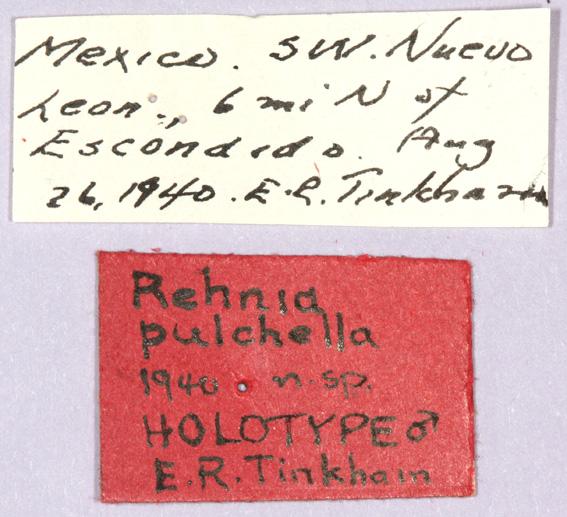 Mexico. SW. Nuevo
Leon., 6 mi N of
Escondido. Aug
26, 1940. E.R. Tinkham
Rehnia
pulchella
1940 n.sp.
HOLOTYPE ♂
E.R. Tinkham